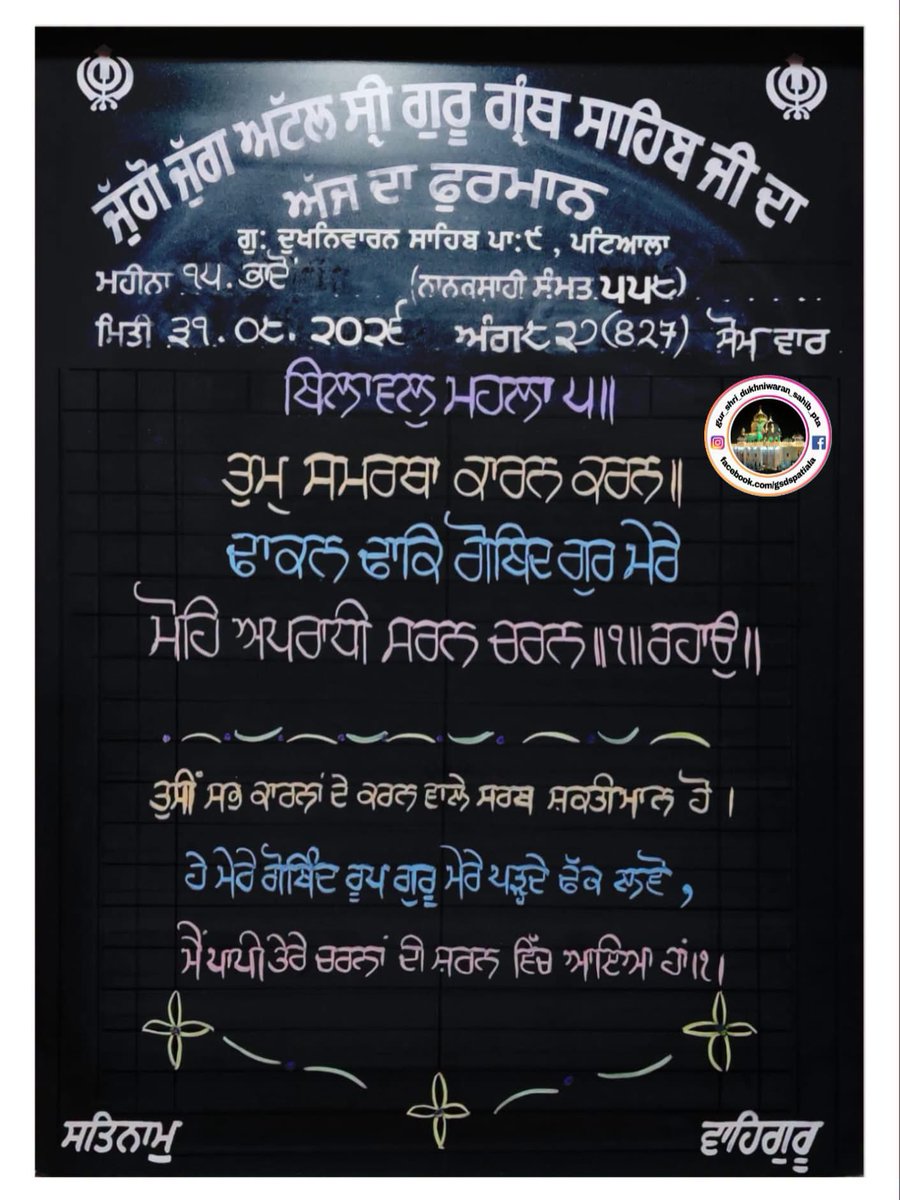 ਜੁੱਗੋ ਜੁੱਗ ਅਟੱਲ ਸ੍ਰੀ ਗੁਰੂ ਗ੍ਰੰਥ ਸਾਹਿਬ ਜੀ ਦਾ
ਅੱਜ ਦਾ ਫੁਰਮਾਨ
ਗੁ: ਦੁਖਨਿਵਾਰਨ ਸਾਹਿਬ ਪਾ:੯ , ਪਟਿਆਲਾ
ਮਹੀਨਾ ੧੫. ਭਾਦੋਂ (ਨਾਨਕਸਾਹੀ ਸੰਮਤ ੫੫੮)
ਮਿਤੀ ੩੧. ੦੮. ੨੦੨੬ ਅੰਗ ੮੨੭ (827) ਸੋਮ ਵਾਰ
ਬਿਲਾਵਲੁ ਮਹਲਾ ੫॥
gur_shri_dukhniwaran_sahib_pta
facebook.com/gsdspatiala
ਤੁਮ੍ਹ ਸਮਰਥਾ ਕਾਰਨ ਕਰਨ॥
ਢਾਕਨ ਢਾਕਿ ਗੋਬਿਦ ਗੁਰ ਮੇਰੇ
ਮੋਹਿ ਅਪਰਾਧੀ ਸਰਨ ਚਰਨ॥੧॥ਰਹਾਉ॥
ਤੁਸੀਂ ਸਭ ਕਾਰਨਾਂ ਦੇ ਕਰਨ ਵਾਲੇ ਸਰਬ ਸ਼ਕਤੀਮਾਨ ਹੋ ।
ਹੇ ਮੇਰੇ ਗੋਬਿੰਦ ਰੂਪ ਗੁਰੂ ਮੇਰੇ ਪੜ੍ਹਦੇ ਢੱਕ ਲਾਵੋ ,
ਮੈਂ ਪਾਪੀ ਤੇਰੇ ਚਰਨਾਂ ਦੀ ਸ਼ਰਨ ਵਿੱਚ ਆਇਆ ਹਾਂ।੧।
ਸਤਿਨਾਮੁ ਵਾਹਿਗੁਰੂ